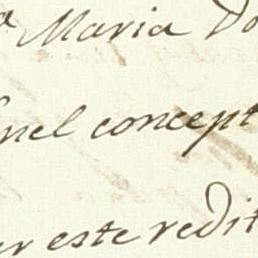 Maria Do
nel concept
er este redit